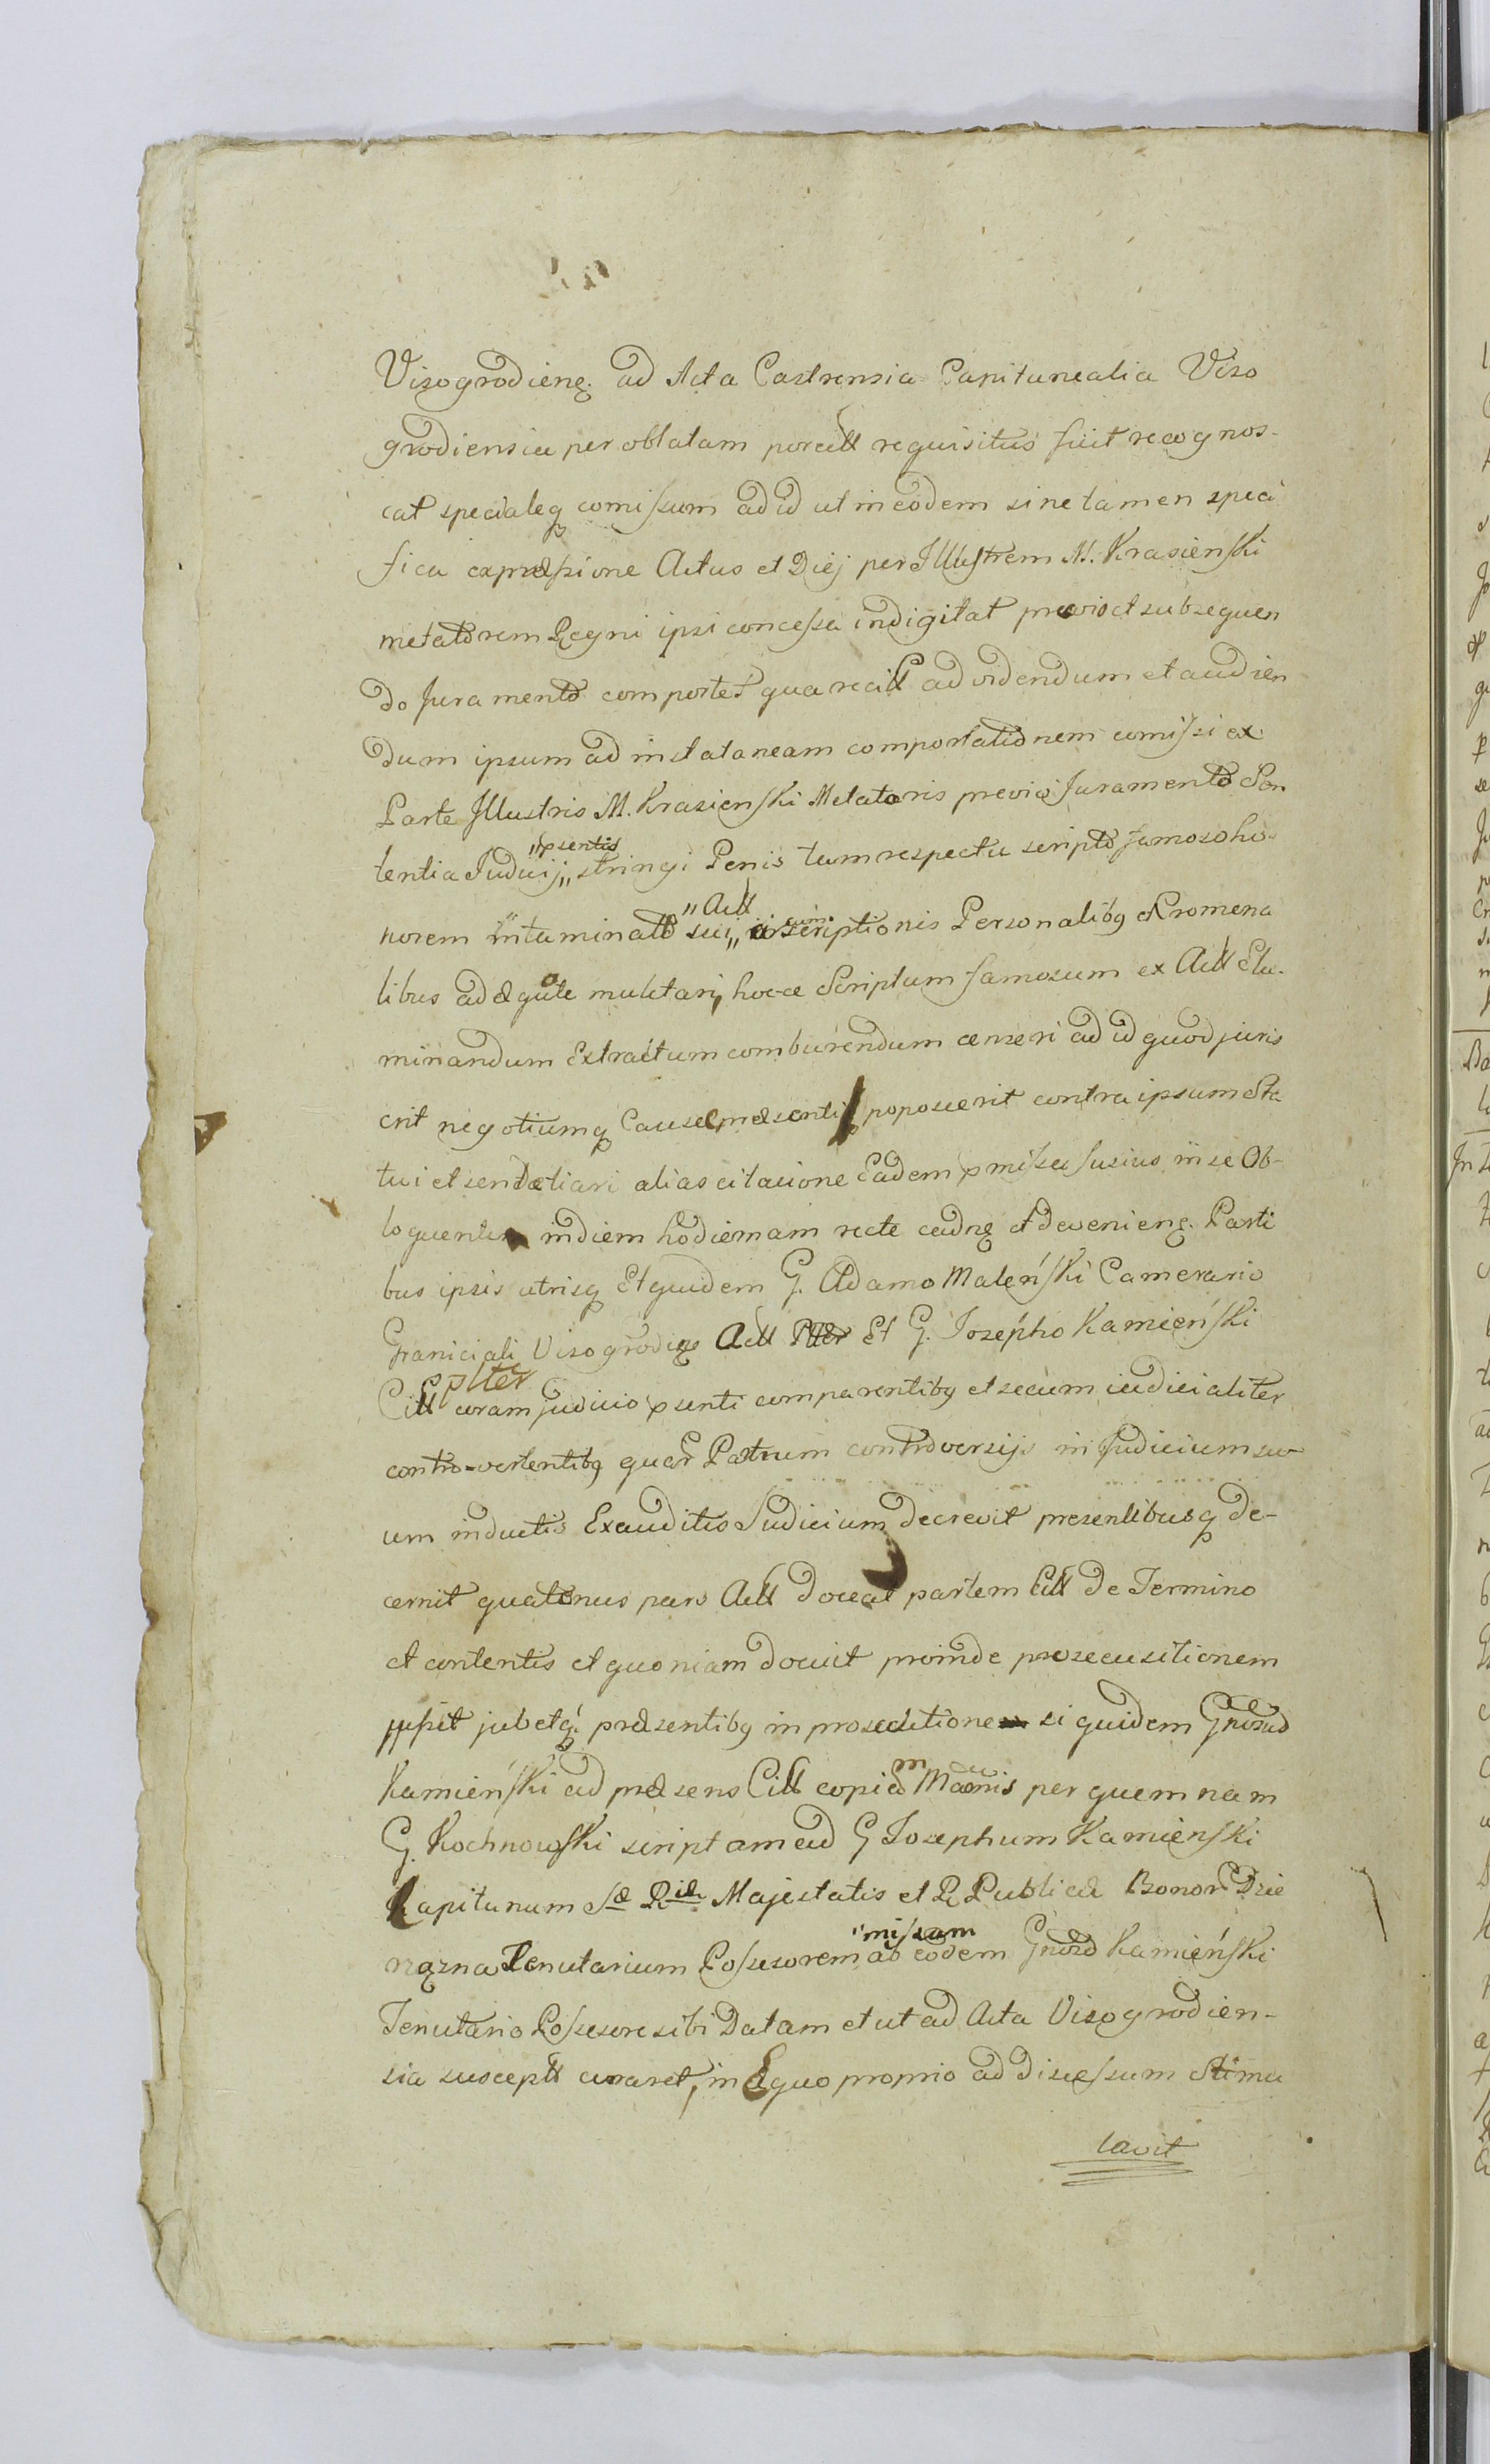 Vizogrodieng. ad Acta Castrensia Capitanealia Viso
grodiensia per oblatam porrectt requisitus fuit recognos-
cat specialeq comissum ad id ut in eodem sine tamen speci
fica expræssione Actus et Diej per Illustrem M. Krasienski
metatorem Regni ipsi concessa indigitat previo et subsequen
do Juramento comportet quare citt ad videndum et audien
dum ipsum ad instataneam comportationem comissi ex
Parte Illustris M. Krasienski Metatoris previo Juramento Sen
tentia Judicij „psentis stringi Penis tum respectu scripto famoso ho-
norem intaminato sui „Actt circumscriptionis Personalibq Kromena
libus adæquate mulctari, hocce Scriptum famosum ex Actt Elu-
minandum Extractum comburendum censeri ad id quod juris
erit negotiumq Causæ præsentis poposcerit contra ipsum Sta
tui et sententiari alias citatione Eadem pmissa fusius in se Ob-
loquente in diem hodiernam recte cadng et devenieng. Parti
bus ipsis utrisq Et quidem G. Adamo Maleński Camerario
Graniciali Visogrodieng Actt Plter Et G. Josepho Kamieński
Citt plter coram Judicio psenti comparentibq et secum iudicialiter
contro-vertentibq quar Partium controversijs in Judicium su-
um inductis Exauditis Judicium decrevit presentibusq de-
cernit quatenus pars Actt doceat partem Citt de Termino
et contentis et quoniam docuit proinde prosecutitionem
jussit jubetq præsentibq in prosecutione siquidem Gnosus
Kamieński ad præsens Citt copiam Manis per quemnam
G. Kochnowski scriptam ad G Josephum Kamienski
Capitanum Sæ Riæ Majestatis et R Publicæ Bonor Dzie
rzązna Tenutarium Possesorem „missam ab eodem Gnoso Kamieński
Tenutario Possesore sibi Datam et ut ad Acta Visogrodien-
sia susceptt curaret, in Equo proprio ad discessum Stimu
lavit